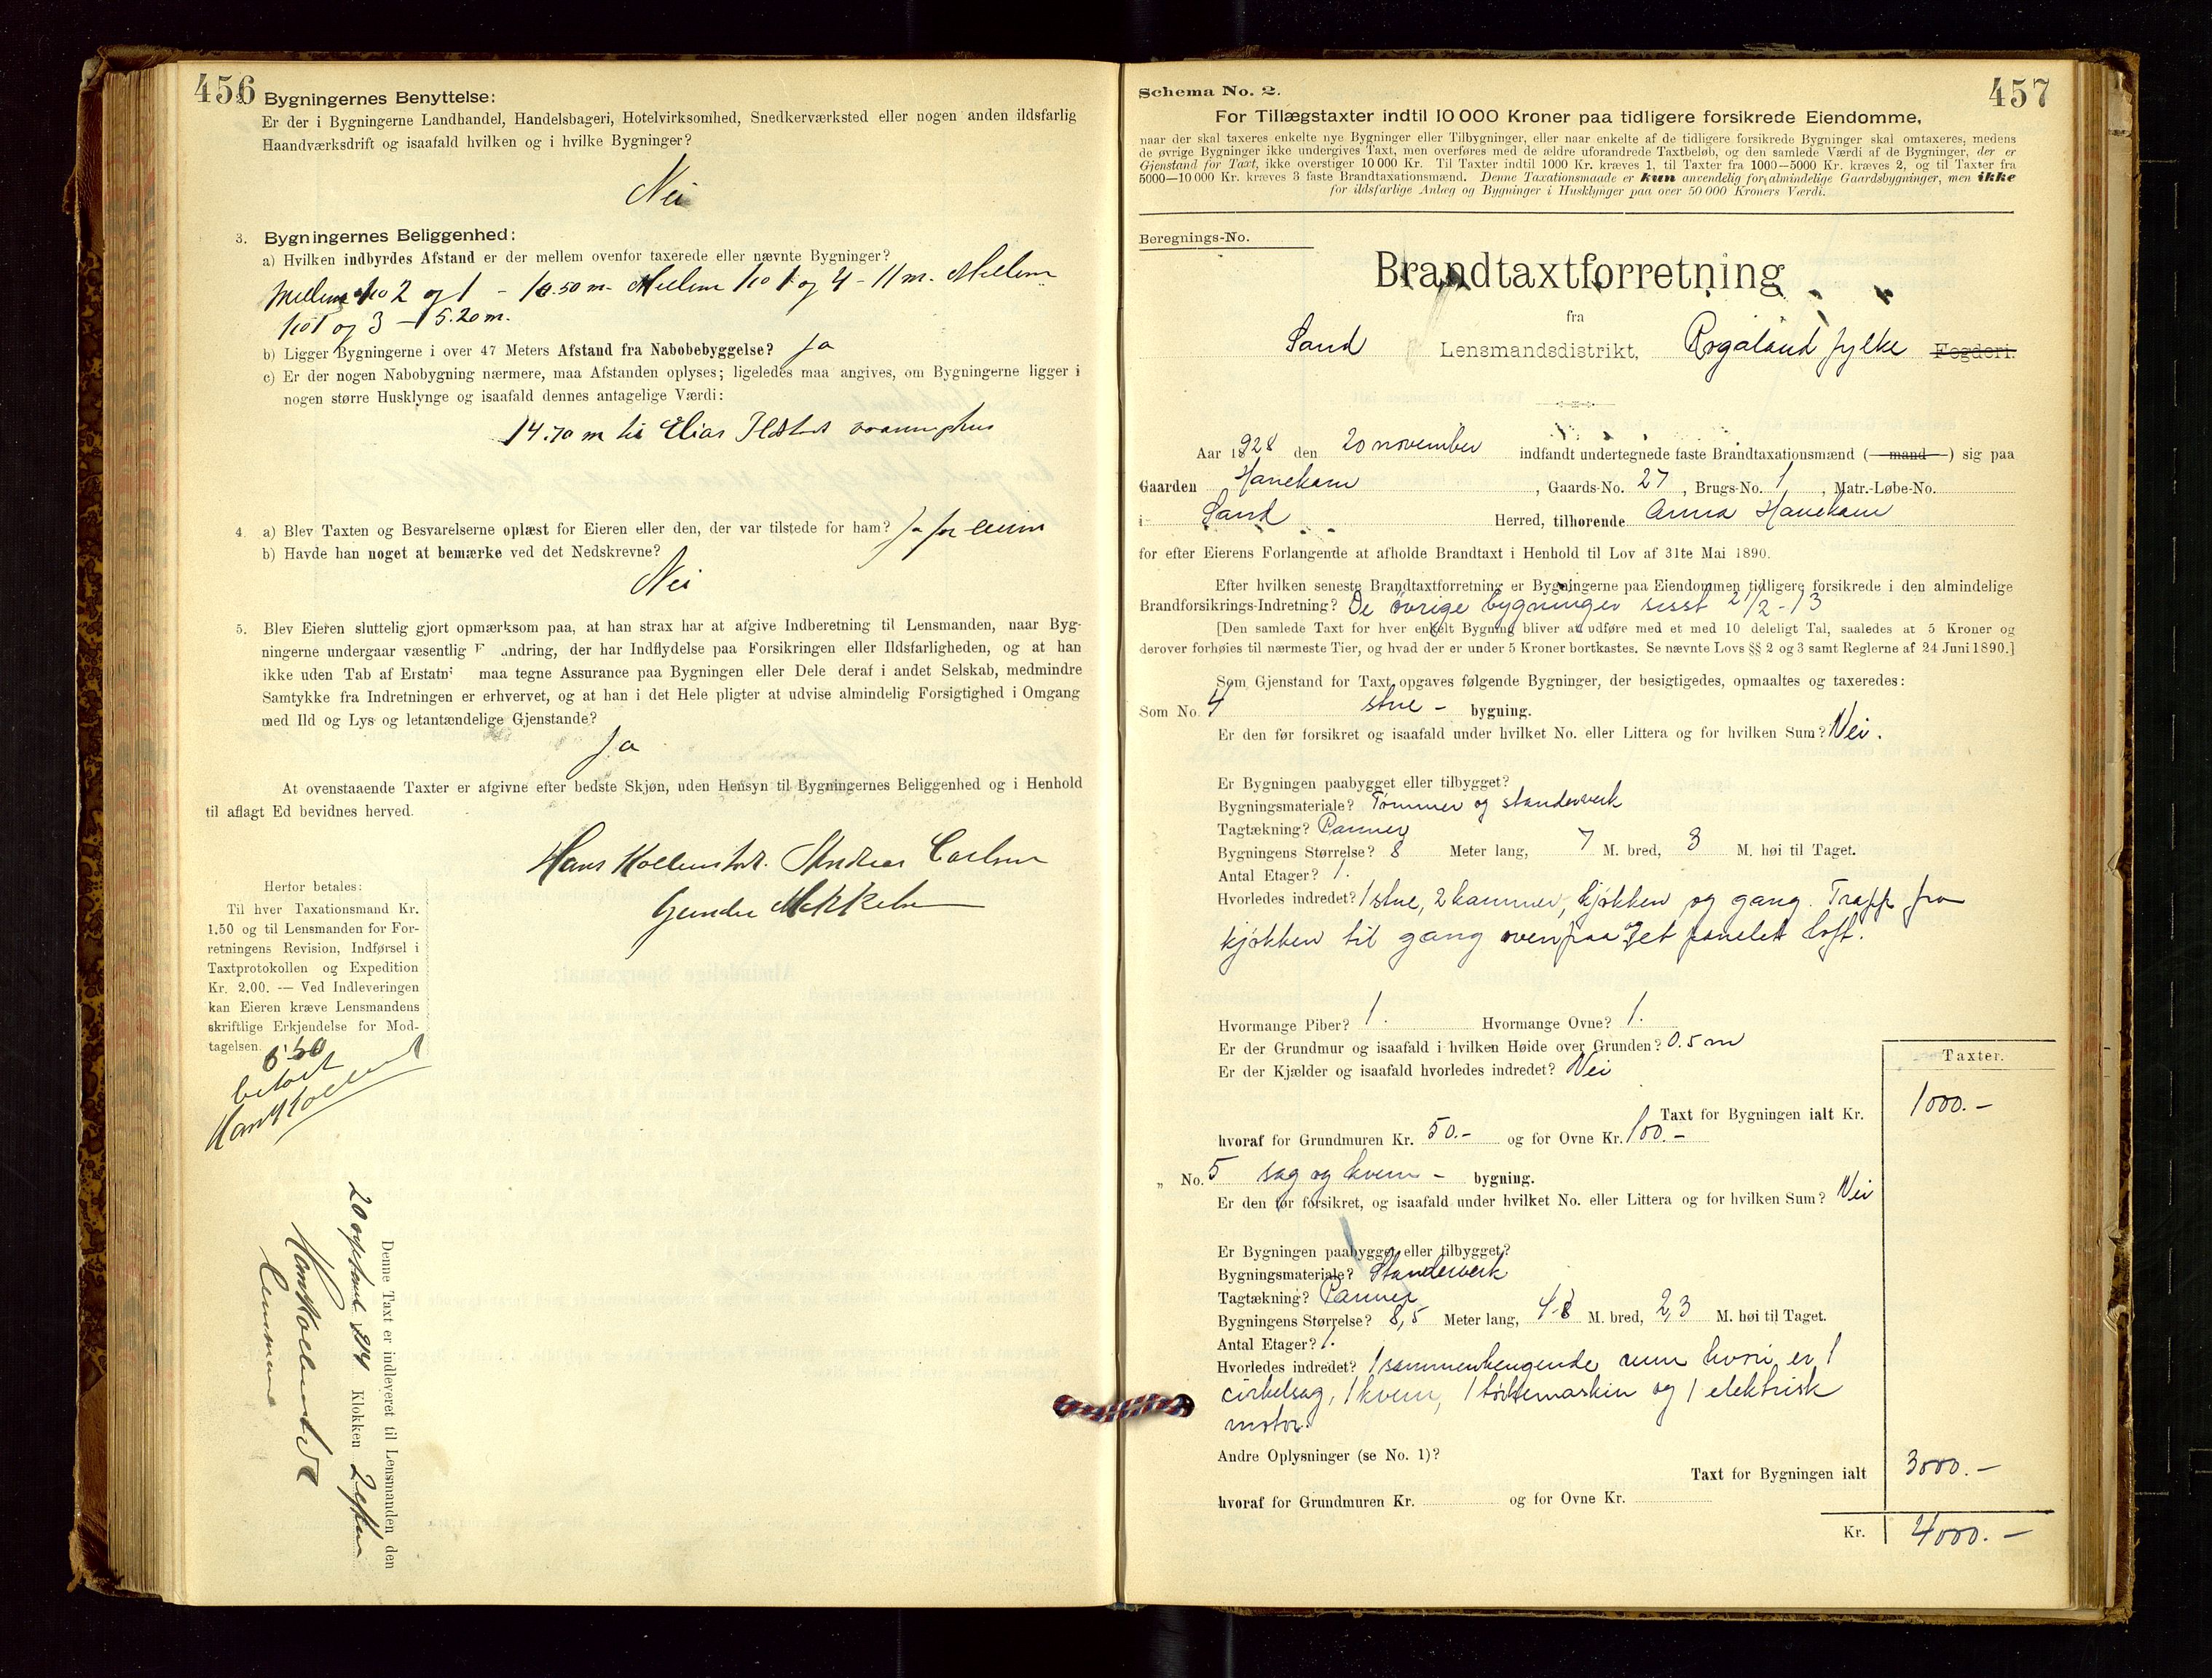 456
Bygningernes Benyttelse:
Er der i Bygningerne Landhandel, Handelsbageri, Hotelvirksomhed, Snedkerværksted eller nogen anden ildsfarlig
Haandværksdrift og isaafald hvilken og i hvilke Bygninger?
Nei
3. Bygningernes Beliggenhed:
a) Hvilken indbyrdes Afstand er der mellem ovenfor taxerede eller nævnte Bygninger?
Mellem No 2 og 1 - 10.50 m. Mellem No 1 og 4 - 11 m. Mellem
No 1 og 3 - 15.20 m.
b) Ligger Bygningerne i over 47 Meters Afstand fra Nabobebyggelse? Ja
c) Er der nogen Nabobygning nærmere, maa Afstanden oplyses; ligeledes maa angives, om Bygningerne ligger i
nogen større Husklynge og isaafald dennes antagelige Værdi:
14.70 m til Elias
4. a) Blev Taxten og Besvarelserne oplæst for Eieren eller den, der var tilstede for ham? Ja for eieren
b) Havde han noget at bemærke ved det Nedskrevne?
Nei
5. Blev Eieren sluttelig gjort opmærksom paa, at han strax har at afgive Indberetning til Lensmanden, naar Byg-
ningerne undergaar væsentlig F andring, der har Indflydelse paa Forsikringen eller Ildsfarligheden, og at han
ikke uden Tab af Erstatni maa tegne Assurance paa Bygningen eller Dele deraf i andet Selskab, medmindre
Samtykke fra Indretningen er erhvervet, og at han i det Hele pligter at udvise almindelig Forsigtighed i Omgang
med Ild og Lys og letantændelige Gjenstande?
Ja
At ovenstaaende Taxter er afgivne efter bedste Skjøn, uden Hensyn til Bygningernes Beliggenhed og i Henhold
til aflagt Ed bevidnes herved.
Hans Andreas Carlsen
Gunder Mikkelsen
Herfor betales:
Til hver Taxationsmand Kr.
1.50 og til Lensmanden for For-
retningens Revision, Indførsel i
Taxtprotokollen og Expedition
Kr. 2.00. — Ved Indleveringen
kan Eieren kræve Lensmandens
skriftlige Erkjendelse for Mod-
tagelsen.
6.50
betalt
Denne Taxt er indleveret til Lensmanden den
20 Klokken
457
Schema No. 2.
For Tillægstaxter indtil 10 000 Kroner paa tidligere forsikrede Eiendomme,
naar der skal taxeres enkelte nye Bygninger eller Tilbygninger, eller naar enkelte af de tidligere forsikrede Bygninger skal omtaxeres, medens
de øvrige Bygninger ikke undergives Taxt, men overføres med de ældre uforandrede Taxtbeløb, og den samlede Værdi af de Bygninger, der er
Gjenstand for Taxt, ikke overstiger 10 000 Kr. Til Taxter indtil 1000 Kr. kræves 1, til Taxter fra 1000—5000 Kr. kræves 2, og til Taxter fra
5000—10 000 Kr. kræves 3 faste Brandtaxationsmænd. Denne Taxationsmaade er kun anvendelig for almindelige Gaardsbygninger, men ikke
for ildsfarlige Anlæg og Bygninger i Husklynger paa over 50 000 Kroners Værdi.
Beregnings-No.
Brandtaxtforretning
fra
Sand Lensmandsdistrikt, Rogaland fylke Fogderi.
Aar 1928 den 20 november indfandt undertegnede faste Brandtaxationsmænd (mand) sig paa
Gaarden Hanekam, Gaards-No. 27, Brugs-No. 1, Matr.-Løbe-No.
i Sand Herred, tilhørende Anna Hanekam
for efter Eierens Forlangende at afholde Brandtaxt i Henhold til Lov af 31te Mai 1890.
Efter hvilken seneste Brandtaxtforretning er Bygningerne paa Eiendommen tidligere forsikrede i den almindelige
Brandforsikrings-Indretning? De øvrige bygninger sisst 2/2 - 13
[Den samlede Taxt for hver enkelt Bygning bliver at udføre med et med 10 deleligt Tal, saaledes at 5 Kroner og
derover forhøies til nærmeste Tier, og hvad der er under 5 Kroner bortkastes. Se nævnte Lovs §§ 2 og 3 samt Reglerne af 24 Juni 1890.]
Som Gjenstand for Taxt opgaves følgende Bygninger, der besigtigedes, opmaaltes og taxeredes:
Som No. 4 stue - bygning.
Er den før forsikret og isaafald under hvilket No. eller Littera og for hvilken Sum? Nei.
Er Bygningen paabygget eller tilbygget?
Bygningsmateriale? Tømmer og standerverk
Tagtækning? Panner
Bygningens Størrelse? 8 Meter lang, 7 M. bred, 3 M. høi til Taget.
Antal Etager? 1.
Hvorledes indredet? 1 stue, 2 kammer, kjøkken og gang. Trapp fra
kjøkken til gang ovenpaa og et panelet loft.
Hvormange Piber? 1. Hvormange Ovne? 1.
Er der Grundmur og isaafald i hvilken Høide over Grunden? 0.5 m
Er der Kjælder og isaafald hvorledes indredet? Nei
Taxter.
Taxt for Bygningen ialt Kr. 1000.-
hvoraf for Grundmuren Kr. 50.- og for Ovne Kr. 100.-
„ No. 5 sag og kvern - bygning.
Er den før forsikret, og isaafald under hvilket No. eller Littera og for hvilken Sum? Nei
Er Bygningen paabygget eller tilbygget?
Bygningsmateriale? Standerverk
Tagtækning? Panner
Bygningens Størrelse? 8,5 Meter lang, 4.8 M. bred, 2,3 M. høi til Taget.
Antal Etager? 1.
Hvorledes indredet? 1 sammenhengende rum hvori er 1
cirkelsag, 1 kvern, 1 tørkemaskin og 1 elektrisk
motor.
Andre Oplysninger (se No. 1)?
Taxt for Bygningen ialt 3000.-
hvoraf for Grundmuren Kr. og for Ovne Kr.
Kr. 4000.-